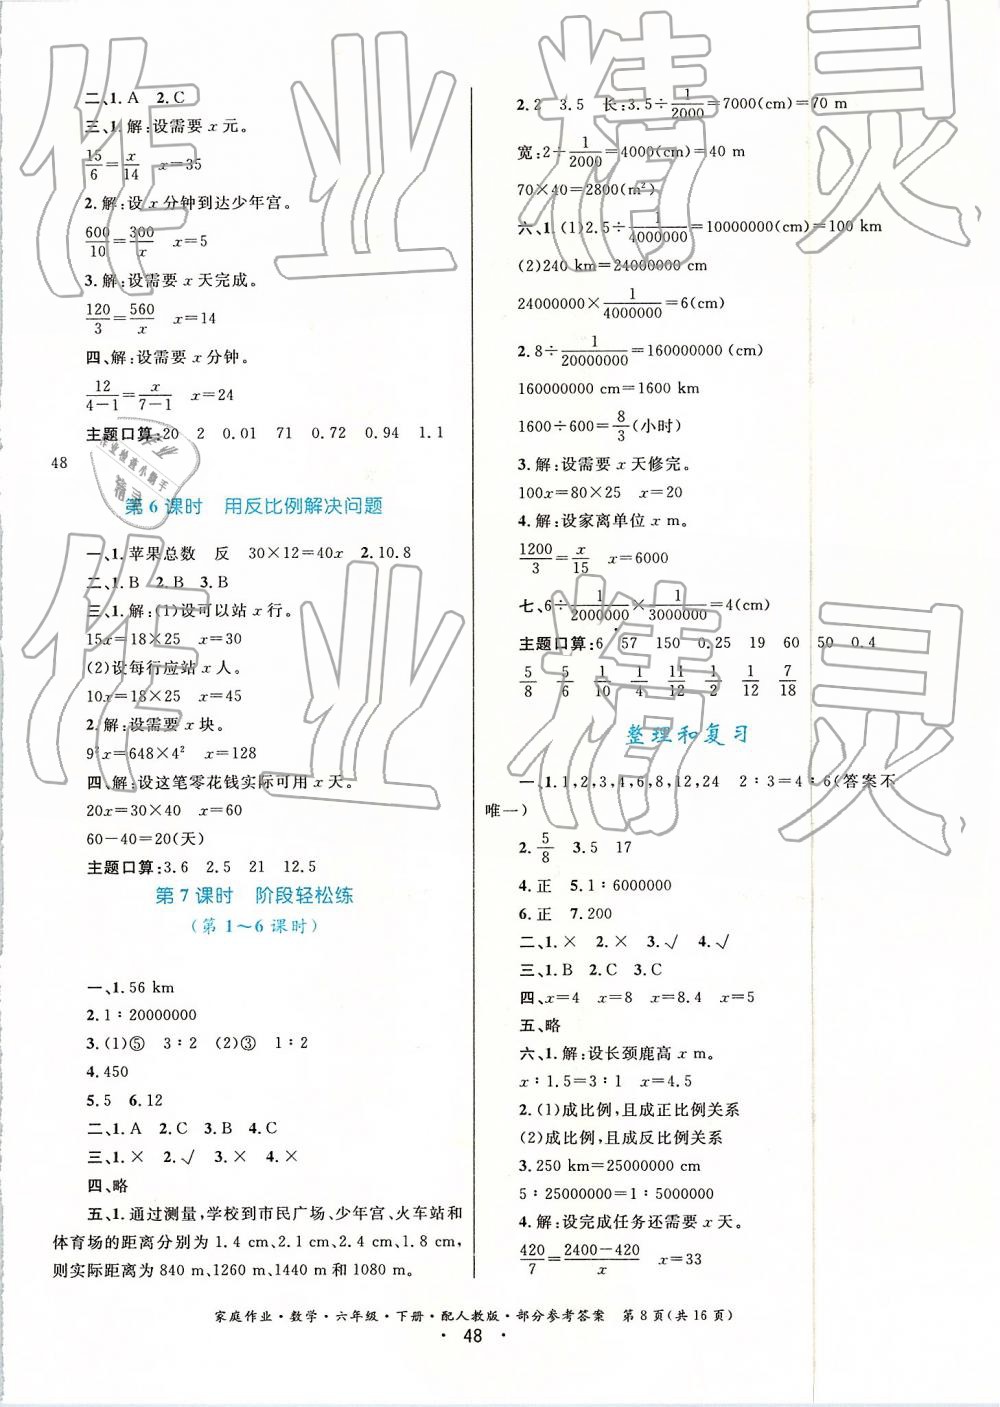 二、1. A　2. C
三、1. 解:设需要 x 元。
15/6=x/14　x=35
2. 解:设 x 分钟到达少年宫。
600/10=300/x　x=5
3. 解:设需要 x 天完成。
120/3=560/x　x=14
四、解:设需要 x 分钟。
12/(4-1)=x/(7-1)　x=24
主题口算:20　2　0.01　71　0.72　0.94　1.1
48
第 6 课时　用反比例解决问题
一、1. 苹果总数　反　30×12=40x　2. 10.8
二、1. B　2. B　3. B
三、1. 解:(1)设可以站 x 行。
15x=18×25　x=30
(2)设每行应站 x 人。
10x=18×25　x=45
2. 解:设需要 x 块。
9²x=648×4²　x=128
四、解:设这笔零花钱实际可用 x 天。
20x=30×40　x=60
60-40=20(天)
主题口算:3.6　2.5　21　12.5
第 7 课时　阶段轻松练
(第 1～6 课时)
一、1. 56 km
2. 1∶20000000
3. (1)⑤　3∶2　(2)③　1∶2
4. 450
5. 5　6. 12
二、1. A　2. C　3. B　4. C
三、1. ×　2. √　3. ×　4. ×
四、略
五、1. 通过测量,学校到市民广场、少年宫、火车站和
体育场的距离分别为 1.4 cm、2.1 cm、2.4 cm、1.8 cm,
则实际距离为 840 m、1260 m、1440 m 和 1080 m。
2. 2　3.5　长:3.5÷1/2000=7000(cm)=70 m
宽:2÷1/2000=4000(cm)=40 m
70×40=2800(m²)
六、1. (1)2.5÷1/4000000=10000000(cm)=100 km
(2)240 km=24000000 cm
24000000×1/4000000=6(cm)
2. 8÷1/20000000=160000000(cm)
160000000 cm=1600 km
1600÷600=8/3(小时)
3. 解:设需要 x 天修完。
100x=80×25　x=20
4. 解:设家离单位 x m。
1200/3=x/15　x=6000
七、6÷1/2000000×1/3000000=4(cm)
主题口算:6　57　150　0.25　19　60　50　0.4
5/8　5/6　1/10　1/4　11/12　1/2　1/12　7/18
整理和复习
一、1. 1,2,3,4,6,8,12,24　2∶3=4∶6(答案不
唯一)
2. 5/8　3. 5　17
4. 正　5. 1∶6000000
6. 正　7. 200
二、1. ×　2. ×　3. √　4. √
三、1. B　2. C　3. C
四、x=4　x=8　x=8.4　x=5
五、略
六、1. 解:设长颈鹿高 x m。
x∶1.5=3∶1　x=4.5
2. (1)成比例,且成正比例关系
(2)成比例,且成反比例关系
3. 250 km=25000000 cm
5∶25000000=1∶5000000
4. 解:设完成任务还需要 x 天。
420/7=(2400-420)/x　x=33
家庭作业·数学·六年级·下册·配人教版·部分参考答案　第 8 页(共 16 页)
· 48 ·
作业精灵
作业精灵
作业
作业检查小助手
精灵